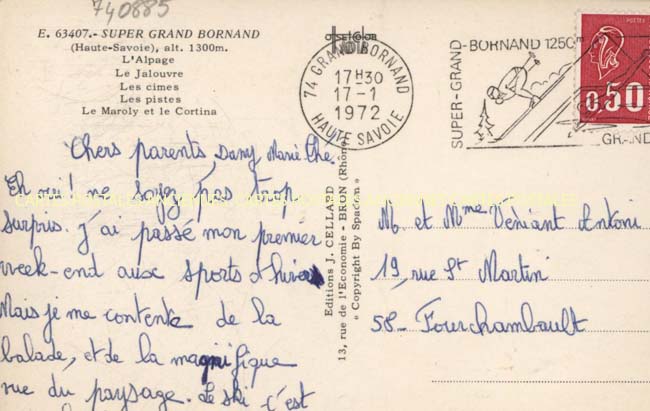 740885
E. 63407.- SUPER GRAND BORNAND
(Haute-Savoie), alt. 1300m.
L'Alpage
Le Jalouvre
Les cimes
Les pistes
Le Maroly et le Cortina
Chers parents, Dany Marie Ché.
Eh oui! ne soyez pas trop
surpris. j'ai passé mon premier
week-end aux sports d'hiver
Mais je me contente de la
balade, et de la magnifique
vue du paysage. Le ski c'est
Editions J. CELLARD
13, rue de l'Economie - BRON (Rhône)
« Copyright By Spadem »
74 GRAND BORNAND
17H30
17-1
1972
HAUTE SAVOIE
SUPER-GRAND-BORNAND 1250m
GRAND
POSTES
0,50
M. et Mme Vériant Antoni
19, rue St Martin
58- Fourchambault